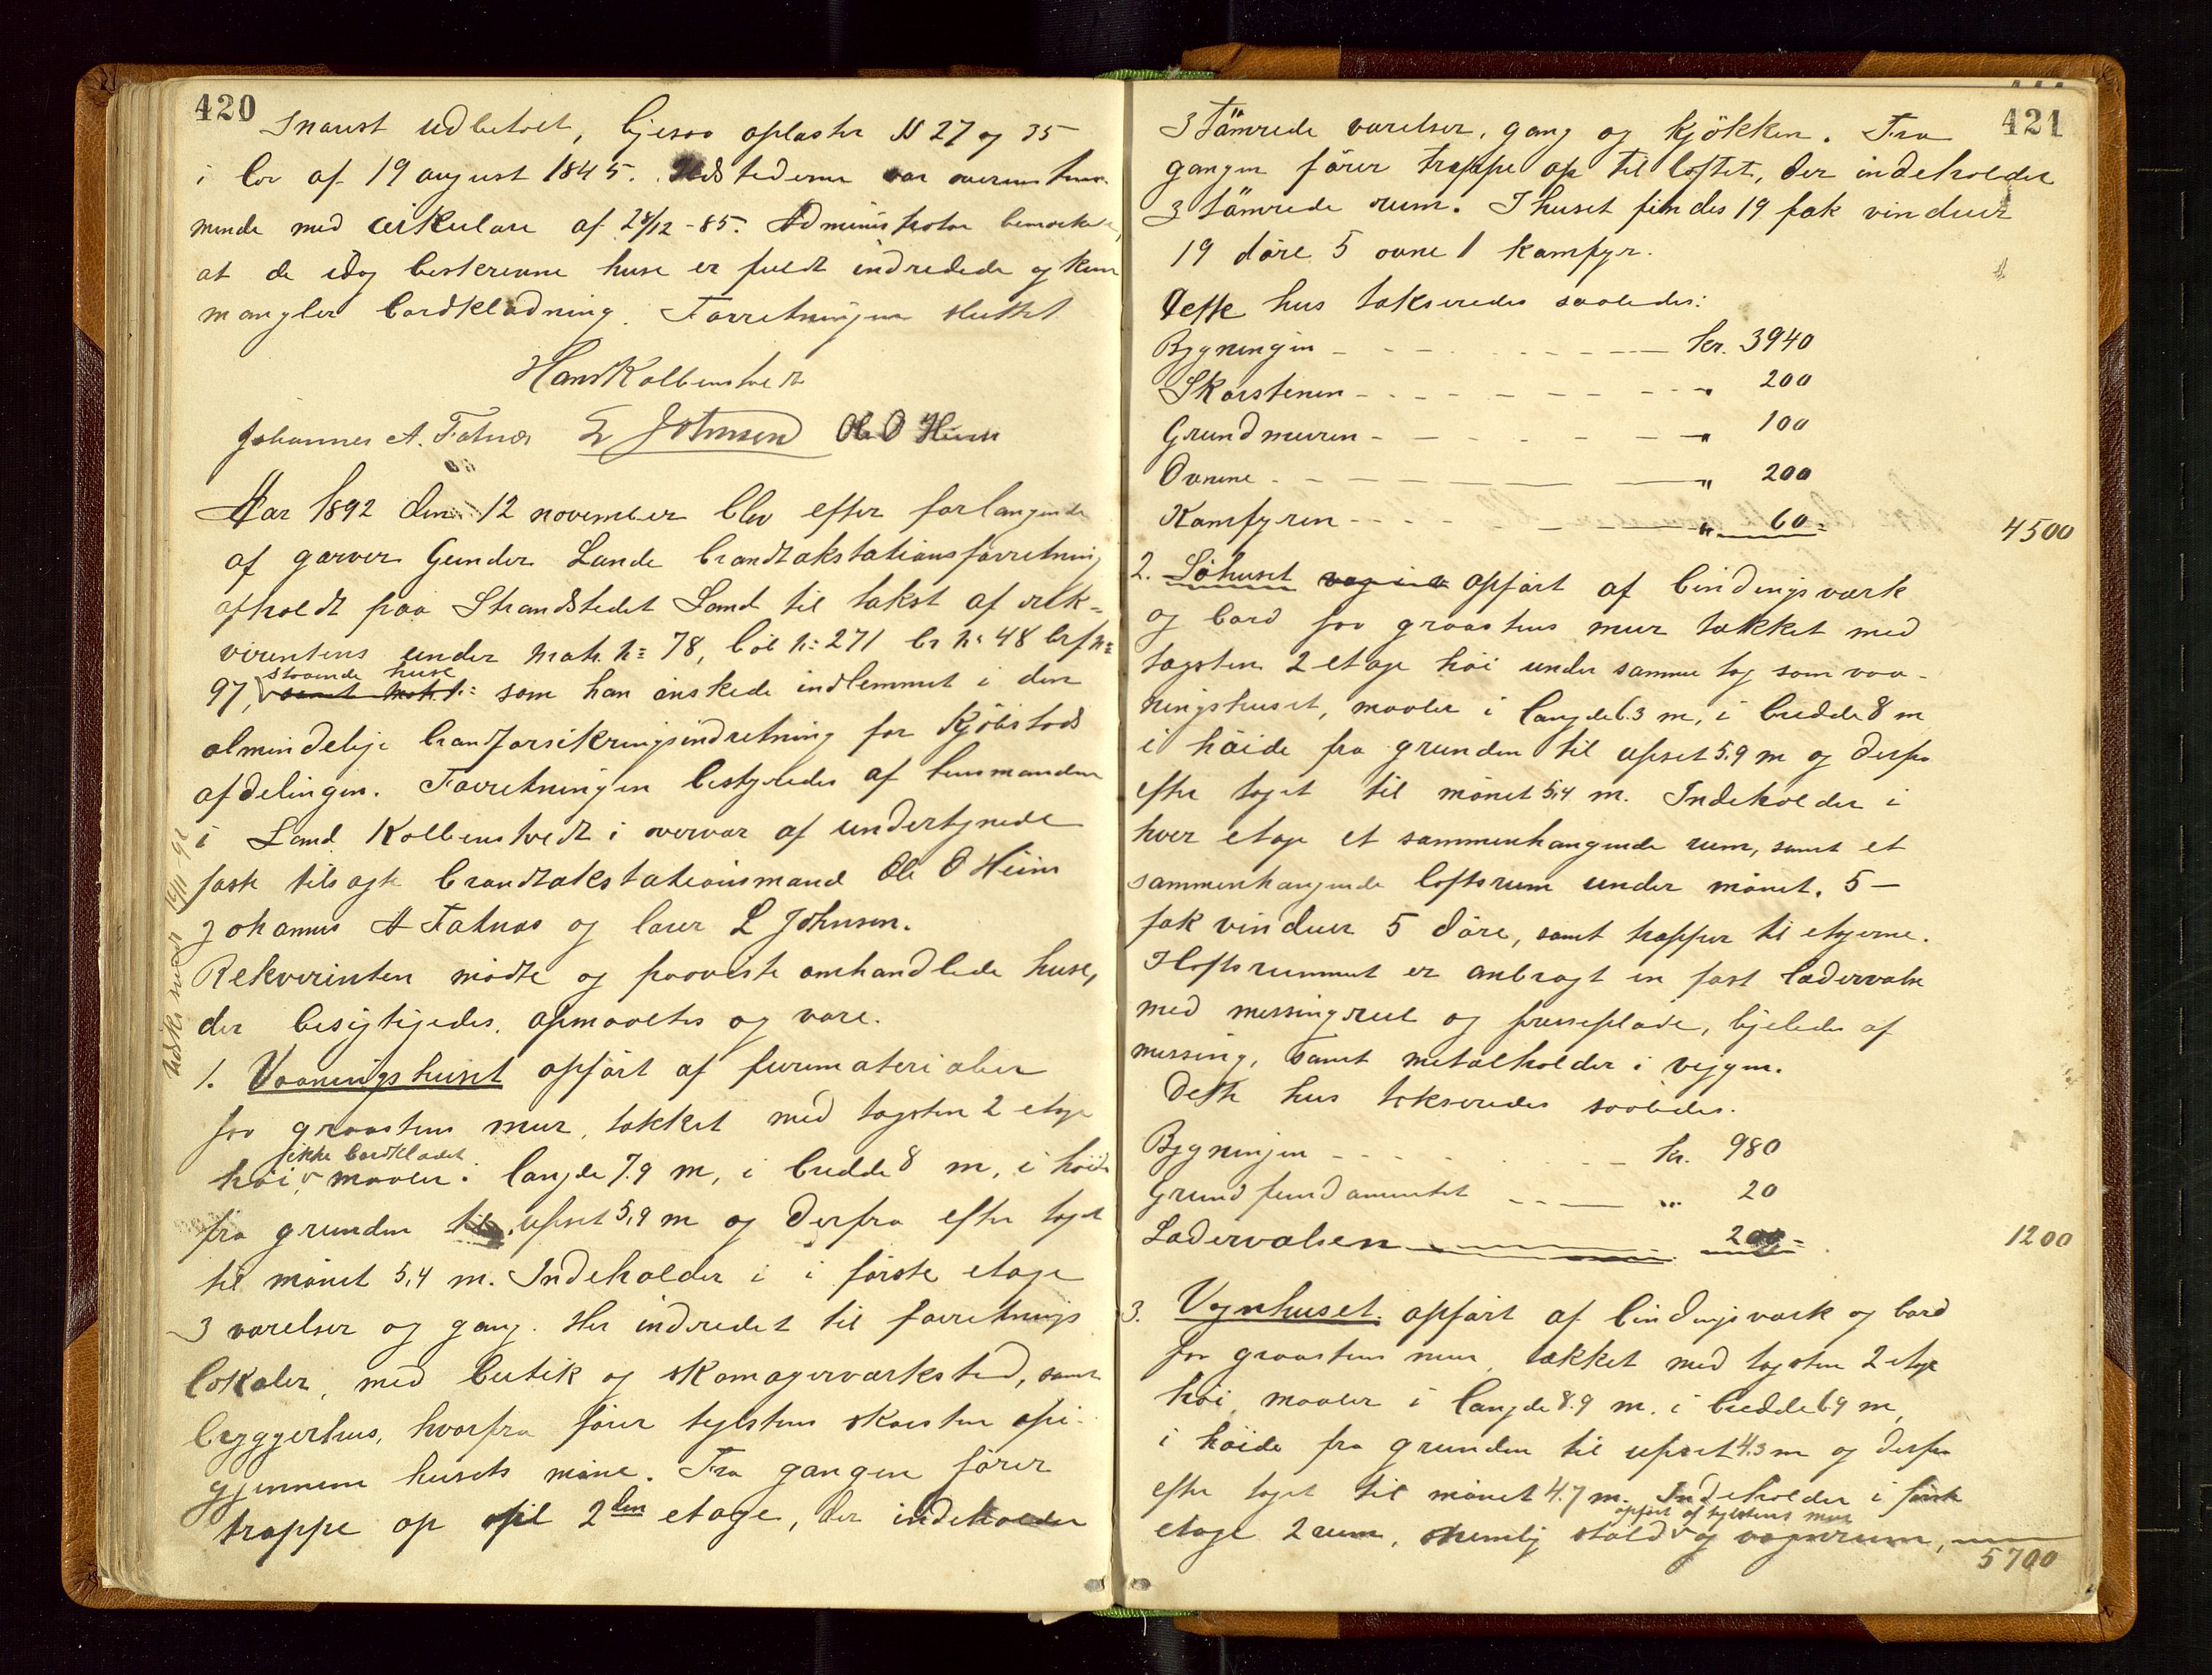 420
snarest udbetalt, ligesaa oplæstes N 27 og 35
i lov af 19 august 1845. Ildstederne var overensstem
mende med cirkulære af 24/12 - 85. Administrator bemærkede,
at de idag beskrevne huse er fuldt indredede og kun
mangler bordklædning. Forretningen sluttet
Hans Kolbenstvedt
Johannes A. Fatnes L Johnsen Ole O Heim
Aar 1892 den 12 november blev efter forlangende
af garver Gunder Lande brandtakstationsforretning
afholdt paa Strandstedet Sand til takst af rek=
virentens under Matr. n= 78, böl n: 271 br n: 48 brf n=
staaende huse
97, samt Matr. n: som han önskede indlemmet i den
almindelige brandforsikringsindretning for Kjöbstads
afdelingen. Forretningen bestyredes af lensmanden
i Sand Kolbenstvedt i overvær af undertegnede
faste tilsagte brandtakstationsmænd Ole O Heim
Johannes A Fatnes og lærer L Johnsen.
Rekvirenten mödte og paaviste omhandlede huse,
der besigtigedes, opmaaltes og vare.
1. Vaaningshuset opfört af furumaterialier
paa graastens mur, tækket med tagsten 2 etage
ikke bordklædet
höi, maaler i længde 7.9 m, i bredde 8 m, i höide
fra grunden til upset 5,9 m og derfra efter taget
til mönet 5,4 m. Indeholder i i förste etage
3 værelser og gang. Her indredet til forretnings
lokaler, med butik og skomagerværksted, samt
bryggerhus, hvorfra förer teglstens skorsten op i-
gjennem husets möne. Fra gangen förer
trappe op til 2den etage, der indeholder
421
3 tömrede værelser, gang og kjökken. Fra
gangen förer trappe op til loftet, der indeholder
3 tömrede rum. I huset findes 19 fak vinduer
19 döre 5 ovne 1 kamfyr.
Dette hus takseredes saaledes:
Bygningen - - - - kr. 3940
Skorstenen - - - - " 200
Grundmuren - - - - " 100
Ovnene - - - - " 200
Kamfyren - - - - " 60= 4500
2. Söhuset opfört af bindingsværk
og bord paa graastens mur tækket med
tagsten 2 etage höi under samme tag som vaa-
ningshuset, maaler i længde 6.3 m, i bredde 8 m
i höide fra grunden til upset 5,9 m og derfra
efter taget til mönet 5,4 m. Indeholder i
hver etage et sammenhængende rum, samt et
sammenhængende loftsrum under mönet. 5 -
fak vinduer 5 döre, samt trapper til etagerne.
I loftsrummet er anbragt en fast lædervalse
med messingrul og presseplade, ligeledes af
messing, samt metalholder i væggen.
Dette hus takseredes saaledes.
Bygningen - - - - kr. 980
Grundfundamentet - - - " 20
Lædervalsen 200= 1200
3. Vognhuset. opfört af bindingsværk og bord
paa graastens mur, tækket med tagsten 2 etage
höi, maaler i længde 8.9 m. i bredde 6.9 m,
i höide fra grunden til upset 4.3 m og derfra
efter taget til mönet 4.7 m. Indeholder i förste
opfört af teglstens mur
etage 2 rum, nemlig stald og vognrum,
5700